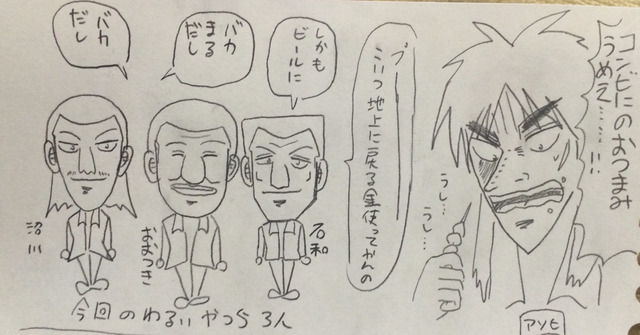 コンビにのおつまみ
うめえ……!!
うし…
うし…
アソヒ
プ
こいつ地上に戻る金使ってやんの
しかも
ビールに
バカ
まる
だし
バカ
だし
石和
おおつき
沼川
今回のわるいやつら3人